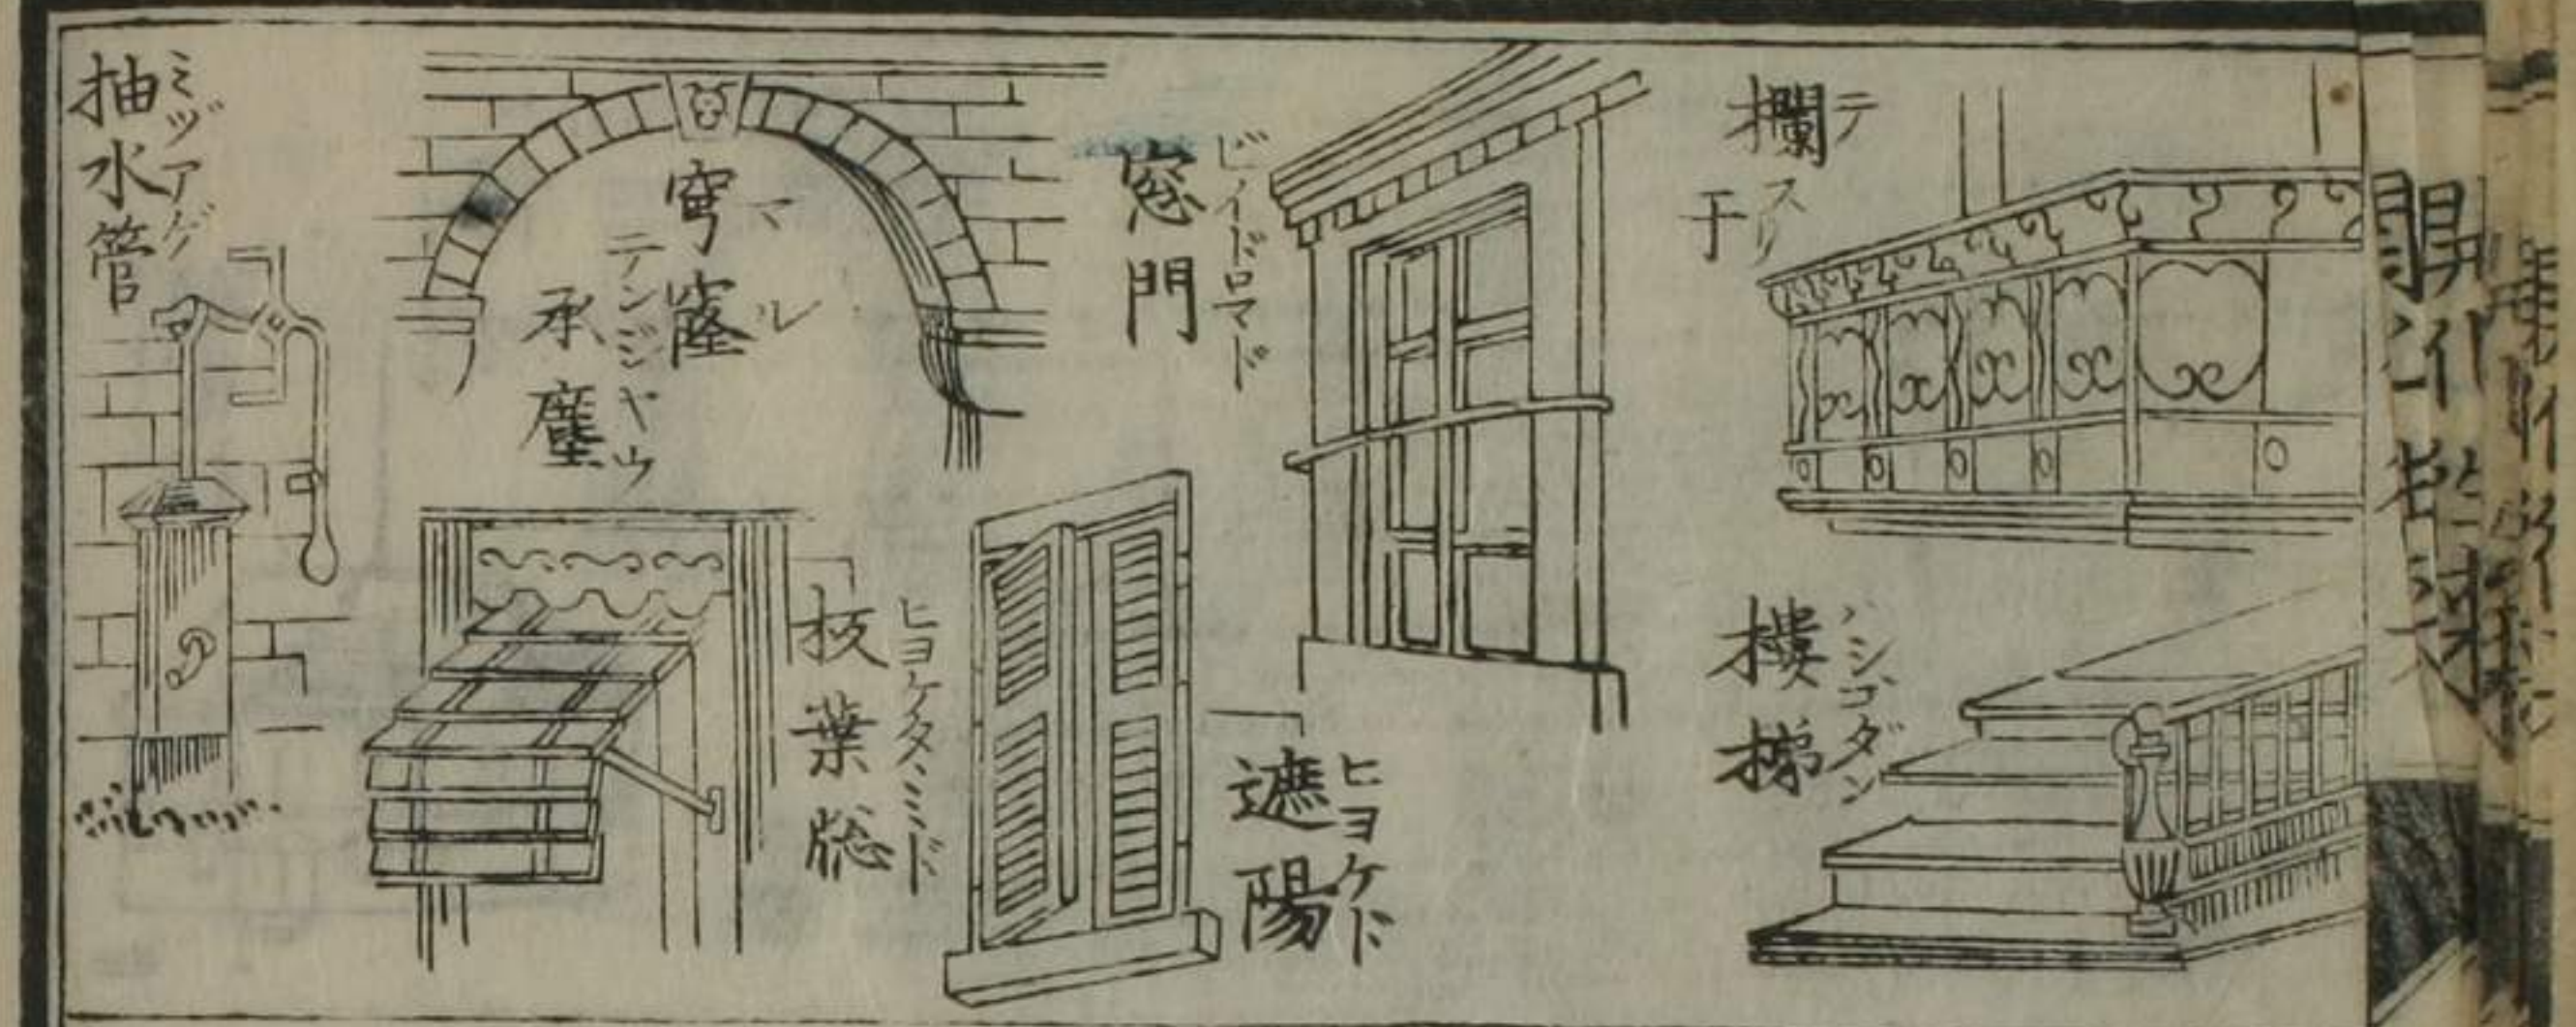 欄干
テスリ
樓梯
ハシゴダン
窓門
ビイドロマド
遮陽
ヒヨケド
穹窿
マル
承塵
テンジヤウ
板葉窓
ヒヨケタヽミド
抽水管
ミヅアゲ